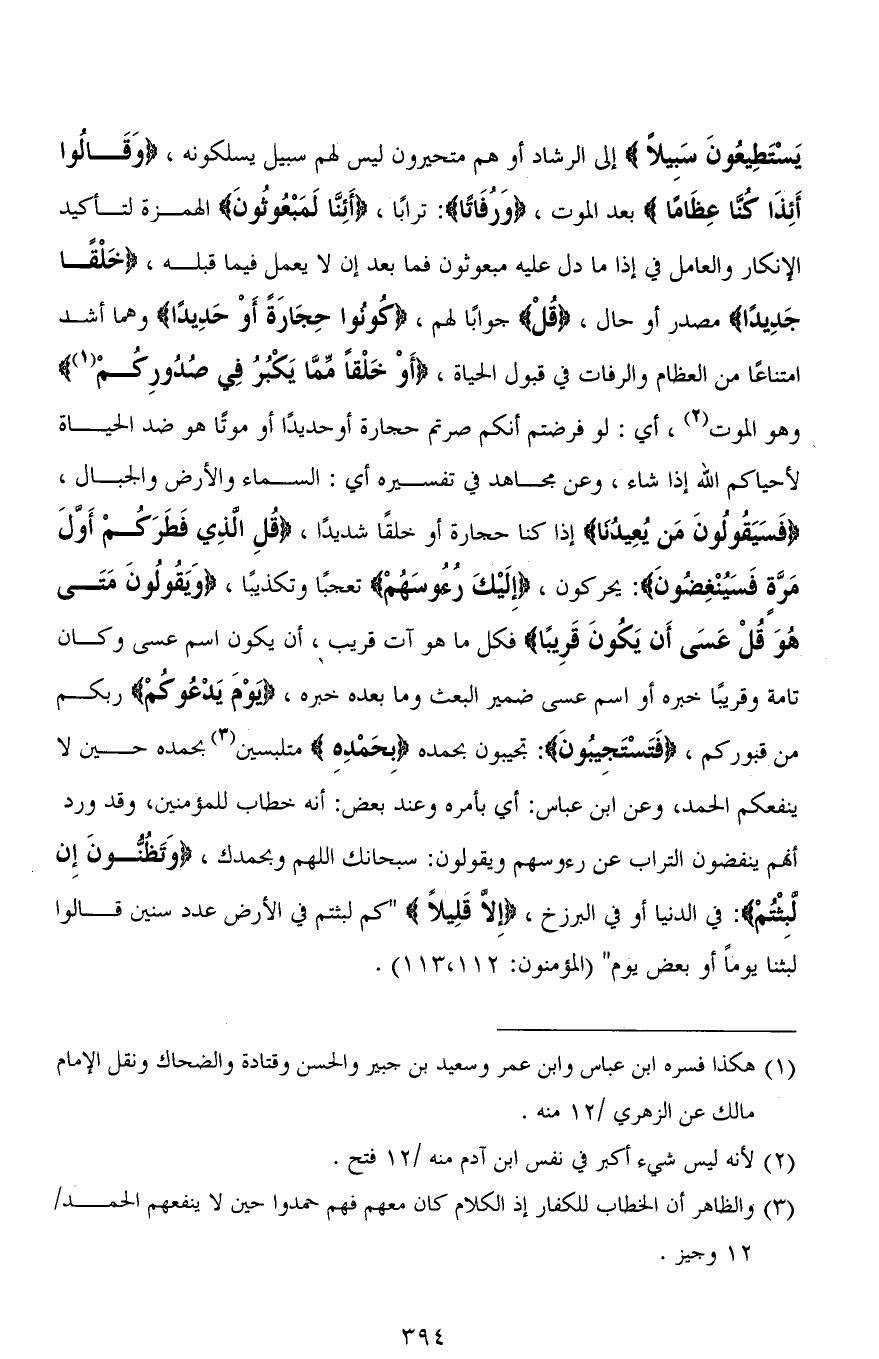 يَسْتَطِيعُونَ سَبِيلاً ﴾ إلى الرشاد أو هم متحيرون ليس لهم سبيل يسلكونه ، ﴿وَقَــالُوا
أَئِذَا كُنَّا عِظَامًا ﴾ بعد الموت ، ﴿وَرُفَاتًا﴾: ترابًا ، ﴿أَئِنَّا لَمَبْعُوثُونَ﴾ الهمــزة لتــأكيد
الإنكار والعامل في إذا ما دل عليه مبعوثون فما بعد إن لا يعمل فيما قبلــه ، ﴿خَلْقًــا
جَدِيدًا﴾ مصدر أو حال ، ﴿قُلْ﴾ جوابًا لهم ، ﴿كُونُوا حِجَارَةً أَوْ حَدِيدًا﴾ وهما أشــد
امتناعًا من العظام والرفات في قبول الحياة ، ﴿أَوْ خَلْقاً مِّمَّا يَكْبُرُ فِي صُدُورِكُــمْ(١)﴾
وهو الموت(٢) ، أي : لو فرضتم أنكم صرتم حجارة أوحديدًا أو موتًا هو ضد الحيــاة
لأحياكم الله إذا شاء ، وعن مجــاهد في تفســيره أي : الســماء والأرض والجبــال ،
﴿فَسَيَقُولُونَ مَن يُعِيدُنَا﴾ إذا كنا حجارة أو خلقًا شديدًا ، ﴿قُلِ الَّذِي فَطَرَكُــمْ أَوَّلَ
مَرَّةٍ فَسَيُنْغِضُونَ﴾: يحركون ، ﴿إِلَيْكَ رُءُوسَهُمْ﴾ تعجبًا وتكذيبًا ، ﴿وَيَقُولُونَ مَتَــى
هُوَ قُلْ عَسَى أَن يَكُونَ قَرِيبًا﴾ فكل ما هو آت قريب ، أن يكون اسم عسى وكــان
تامة وقريبًا خبره أو اسم عسى ضمير البعث وما بعده خبره ، ﴿يَوْمَ يَدْعُوكُمْ﴾ ربكــم
من قبوركم ، ﴿فَتَسْتَجِيبُونَ﴾: تجيبون بحمده ﴿بِحَمْدِهِ ﴾ متلبسين(٣) بحمده حــين لا
ينفعكم الحمد، وعن ابن عباس: أي بأمره وعند بعض: أنه خطاب للمؤمنين، وقد ورد
أنهم ينفضون التراب عن رءوسهم ويقولون: سبحانك اللهم وبحمدك ، ﴿وَتَظُنُّــونَ إِن
لَّبِثْتُمْ﴾: في الدنيا أو في البرزخ ، ﴿إِلاَّ قَلِيلاً ﴾ "كم لبثتم في الأرض عدد سنين قــالوا
لبثنا يوماً أو بعض يوم" (المؤمنون: ١١٣،١١٢) .
(١) هكذا فسره ابن عباس وابن عمر وسعيد بن جبير والحسن وقتادة والضحاك ونقل الإمام
مالك عن الزهري /١٢ منه .
(٢) لأنه ليس شيء أكبر في نفس ابن آدم منه /١٢ فتح .
(٣) والظاهر أن الخطاب للكفار إذ الكلام كان معهم فهم حمدوا حين لا ينفعهم الحمــد/
١٢ وجيز .
٣٩٤